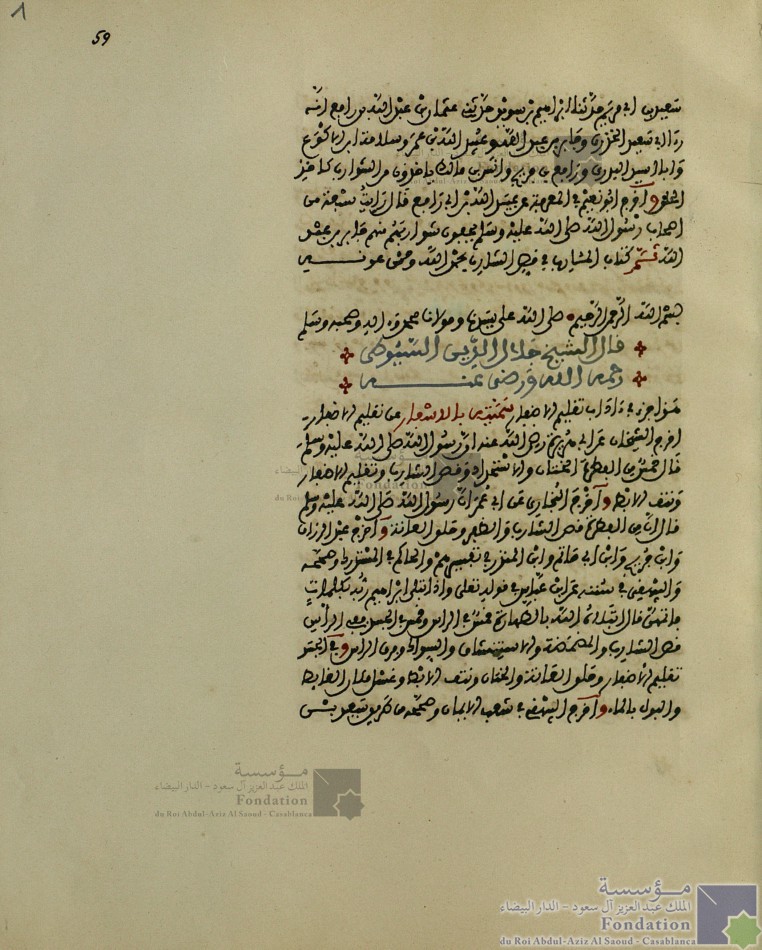 ٨
59
سعيد بن أبي مريم حدثنا إبراهيم بن سويد حدثني عثمان بن عبد الله بن رافع أنه
رأى أبا سعيد الخدري وجابر بن عبد الله وعبد الله بن عمر وسلامة ابن الاكوع
وأبا أسيد البدري ورافع بن خديج وأنس بن مالك ياخذون من الشوارب كاخذ
الحلق وأخرج أبو نعيم في المعرفة عن عبيد الله بن أبي رافع قال رأيت سبعة من
أصحاب رسول الله صلى الله عليه وسلم يحفون شواربهم منهم جابر بن عبد
الله تم كتاب في قص الشارب بحمد الله وحسن عونـــه
بسم الله الرحمن الرحيم صلى الله على سيدنا ومولانا محمد وءاله وصحبه وسلم
قال الشيخ جلال الدين السيوطي
رحمه الله ورضي عنـــه
هذا جزء في ءاداب تقليم الاظفار سميته بالاسفار عن تقليم الاظفار
أخرج الشيخان عن أبي هريرة رضي الله عنه أن رسول الله صلى الله عليه وسلم
قال خمس من الفطرة الختان والاستحداد وقص الشارب وتقليم الاظفار
ونتف الابط وأخرج البخاري عن ابن عمر أن رسول الله صلى الله عليه وسلم
قال إن من الفطرة قص الشارب والظفر وحلق العانة وأخرج عبد الرزاق
وابن جرير وابن أبي حاتم وابن المنذر في تفسيرهم والحاكم في المستدرك وصححه
والبيهقي في سننه عن ابن عباس في قوله تعلى وإذ ابتلى إبراهيم ربه بكلمات
فأتمهن قال ابتلاه الله بالطهارة خمس في الراس وخمس في الجسد في الرأس
قص الشارب والمضمضة والاستنشاق والسواك وفرق الراس وفي الجسد
تقليم الاظفار وحلق العانة والختان ونتف الابط وغسل مكان الغائط
والبول بالماء وأخرج البيهقي في شعب الايمان وصححه من طريق
مؤسسة
الملك عبد العزيز آل سعود - الدار البيضاء
Fondation
du Roi Abdul-Aziz Al Saoud - Casablanca
مؤسسة
الملك عبد العزيز آل سعود - الدار البيضاء
Fondation
du Roi Abdul-Aziz Al Saoud - Casablanca